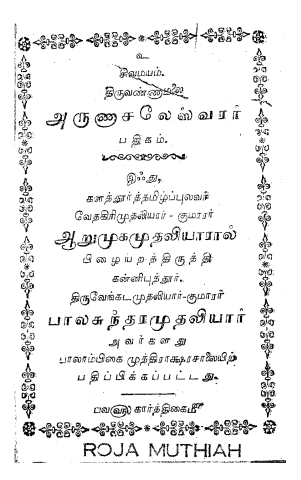 உ
சிவமயம்.
திருவண்ணாமலை
அருணாசலேஸ்வரர்
பதிகம்.
இஃது,
களத்தூர்த்தமிழ்ப்புலவர்
வேதகிரிமுதலியார் - குமாரர்
ஆறுமுகமுதலியாரால்
பிழையறத்திருத்தி
கன்னிபுத்தூர்.
திருவேங்கடமுதலியார்-குமாரர்
பாலசுந்தரமுதலியார்
அவர்களது
பாலாம்பிகை முத்திராக்ஷரசாலையிற்
பதிப்பிக்கப்பட்டது.
பவ௵ கார்த்திகை௴
ROJA MUTHIAH